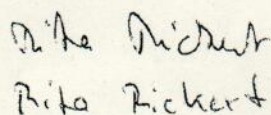 Rita Rickert
Rita Rickert